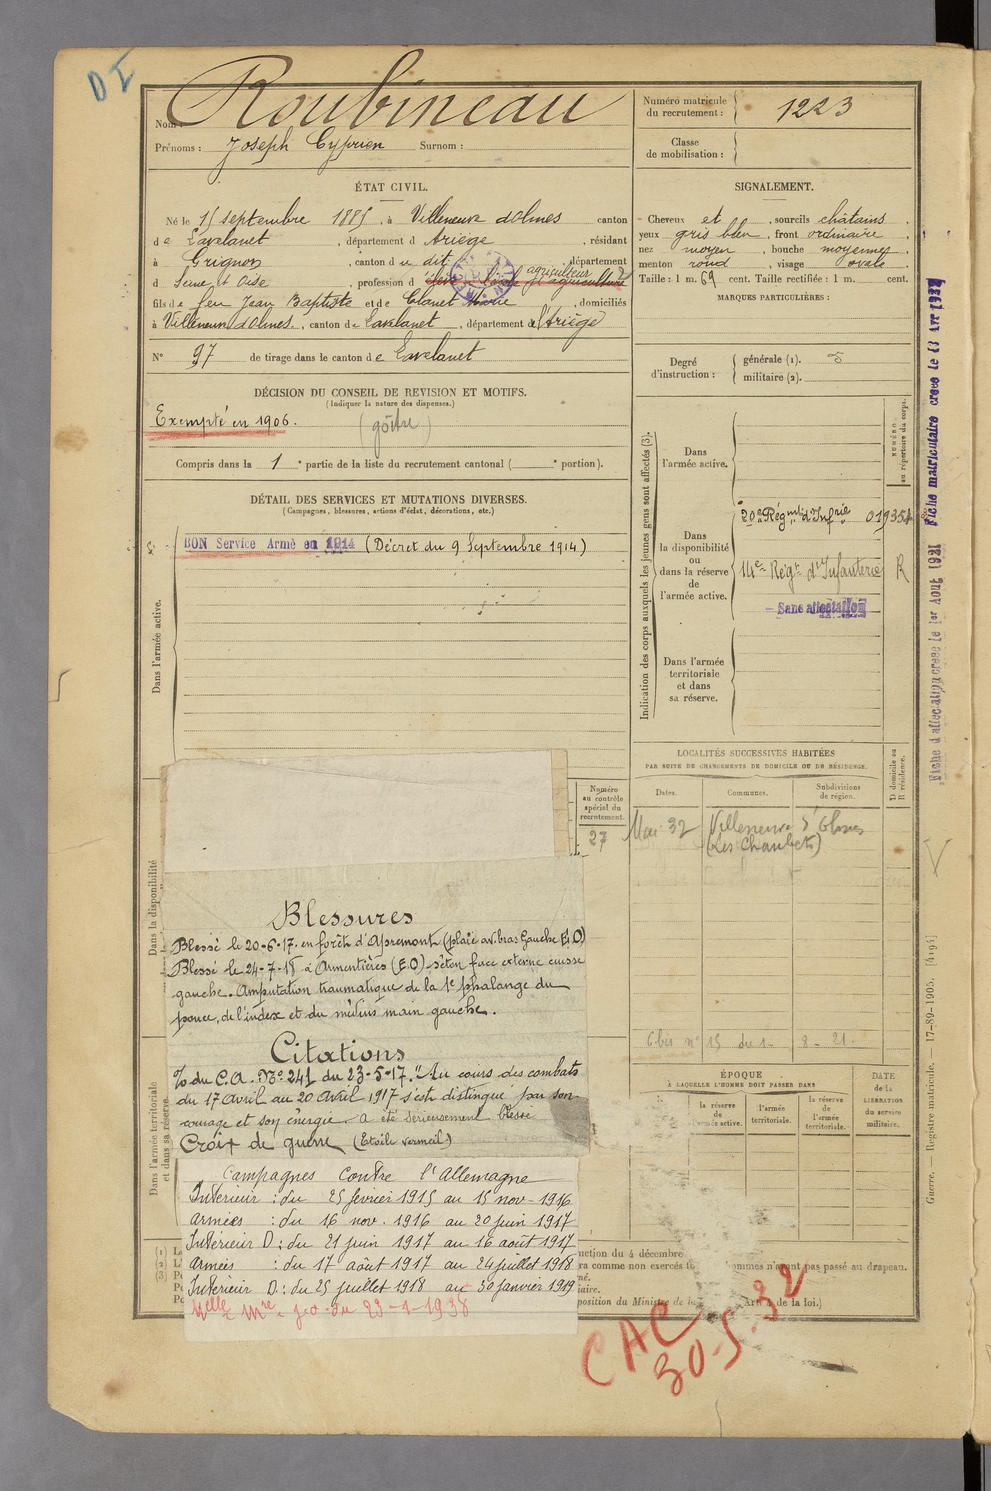 D I
Nom : Roubineau
Prénoms : Joseph Cyprien Surnom :
Numéro matricule du recrutement : 1223
Classe de mobilisation :
ÉTAT CIVIL.
Né le 15 septembre 1885, à Villeneuve dolmes canton
de Lavelanet, département d Ariège, résidant
à Grignon, canton d u dit, département
d Seine et Oise, profession d élève à l'école d'agriculture agriculteur
fils de feu Jean Baptiste et de Clanet Marie, domiciliés
à Villeneuve dolmes, canton de Lavelanet, département de l'Ariège
N° 97 de tirage dans le canton de Lavelanet
SIGNALEMENT.
Cheveux et, sourcils châtains
yeux gris bleu, front ordinaire
nez moyen, bouche moyenne
menton rond, visage ovale
Taille : 1 m. 69 cent. Taille rectifiée : 1 m. cent.
MARQUES PARTICULIÈRES :
Degré d'instruction : générale (1). 3
militaire (2).
DÉCISION DU CONSEIL DE REVISION ET MOTIFS.
(Indiquer la nature des dispenses.)
Exempté en 1906. (goître)
Compris dans la 1e partie de la liste du recrutement cantonal ( e portion).
DÉTAIL DES SERVICES ET MUTATIONS DIVERSES.
(Campagnes, blessures, actions d'éclat, décorations, etc.)
BON Service Armé en 1914 (Décret du 9 Septembre 1914)
Dans l'armée active.
Dans la disponibilité
Dans l'armée territoriale et dans sa réserve
Indication des corps auxquels les jeunes gens sont affectés (3).
NUMÉRO au répertoire du corps.
Dans l'armée active.
Dans la disponibilité ou dans la réserve de l'armée active.
20e Régmt d'Infrie 019354
14e Régt d'Infanterie R
Sans affectation
Dans l'armée territoriale et dans sa réserve.
Fiche matriculaire créée le
Fiche d'affectation créée le 1er Août 1931
LOCALITÉS SUCCESSIVES HABITÉES
PAR SUITE DE CHANGEMENTS DE DOMICILE OU DE RÉSIDENCE.
Dates. Communes. Subdivisions de région. D domicile ou R résidence.
Mai 32 Villeneuve d'Olmes
Numéro au contrôle spécial du recrutement.
27
6 bis n° 15 du 1- 8- 21
Blessures
Blessé le 20-6-17. en forêt d'Apremont (plaie av. bras Gauche E.O)
Blessé le 24-7-18 à Armentières (E.O) séton face externe cuisse
gauche. Amputation traumatique de la 1e phalange du
pouce, de l'index et du médius main gauche.
Citations
% du C.A. No 241 du 23-5-17. "Au cours des combats
du 17 Avril au 20 Avril 1917 s'est distingué par son
courage et son énergie. a été sérieusement blessé
Croix de guerre (Etoile vermeil)
Campagnes contre l'Allemagne
Intérieur : du 25 février 1915 au 15 nov - 1916
Armées : du 16 nov. 1916 au 20 juin 1917
Intérieur D : du 21 juin 1917 au 16 août 1917
Armées : du 17 août 1917 au 24 juillet 1918
Intérieur D : du 25 juillet 1918 au 30 janvier 1919
ÉPOQUE
À LAQUELLE L'HOMME DOIT PASSER DANS
la réserve de l'armée active. l'armée territoriale. la réserve de l'armée territoriale.
DATE de la LIBÉRATION du service militaire.
uction du 4 décembre
ra comme non exercés
ommes n'ayant pas passé au drapeau.
position du Ministre de la
de la loi.)
CAC
30-5-32
Guerre. — Registre matricule. — 17-89-1905. [4194]